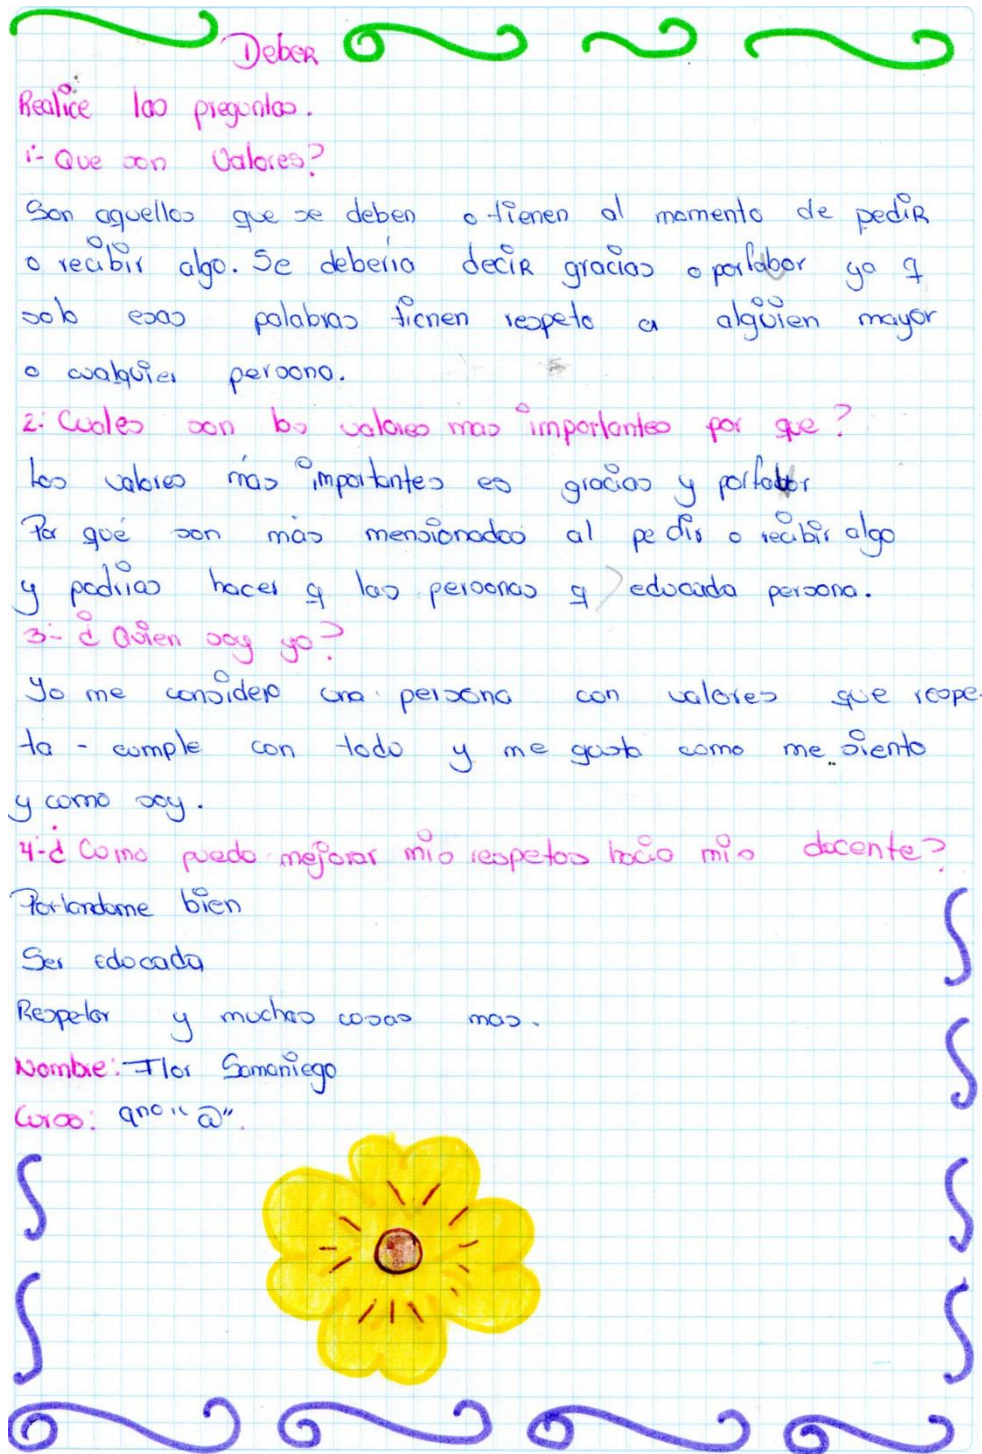 Deber
Realice las preguntas.
1- Que son Valores?
Son aquellos que se deben o tienen al momento de pedir
o recibir algo. Se debería decir gracias o porfabor ya q
solo esas palabras tienen respeto a alguien mayor
o cualquier persona.
2- Cuales son los valores mas importantes por que?
Los valores más importantes es gracias y porfabor
Por qué son más mensionados al pedir o recibir algo
y podrias hacer q las personas q educada persona.
3- ¿Quien soy yo?
Yo me considero una persona con valores que respe-
ta - cumple con todo y me gusta como me siento
y como soy.
4-¿Como puedo mejorar mis respetos hacia mis docente?
Portandome bien
Ser educada
Respetar y muchas cosas mas.
Nombre: Flor Samaniego
Curso: 9no "a".